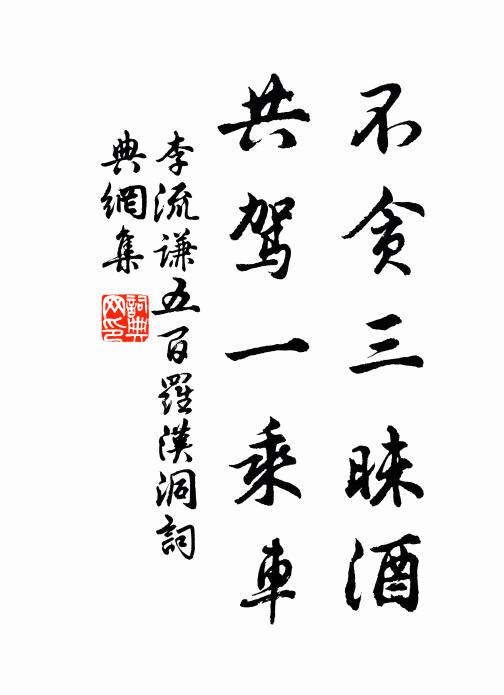 不贪三昧酒
共駕一乘車
李流謙五百羅漢洞詞
典網集
詞典网印